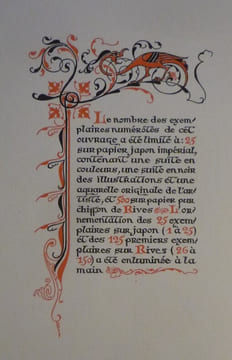 Le nombre des exem-
plaires numérotés de cet
ouvrage a été limité à : 25
sur papier japon impérial,
contenant une suite en
couleurs, une suite en noir
des illustrations et une
aquarelle originale de l'ar-
tiste, et 500 sur papier pur
chiffon de Rives L'or-
nementation des 25 exem-
plaires sur japon (1 à 25)
et des 125 premiers exem-
plaires sur Rives (26 à
150) a été enluminée à la
main